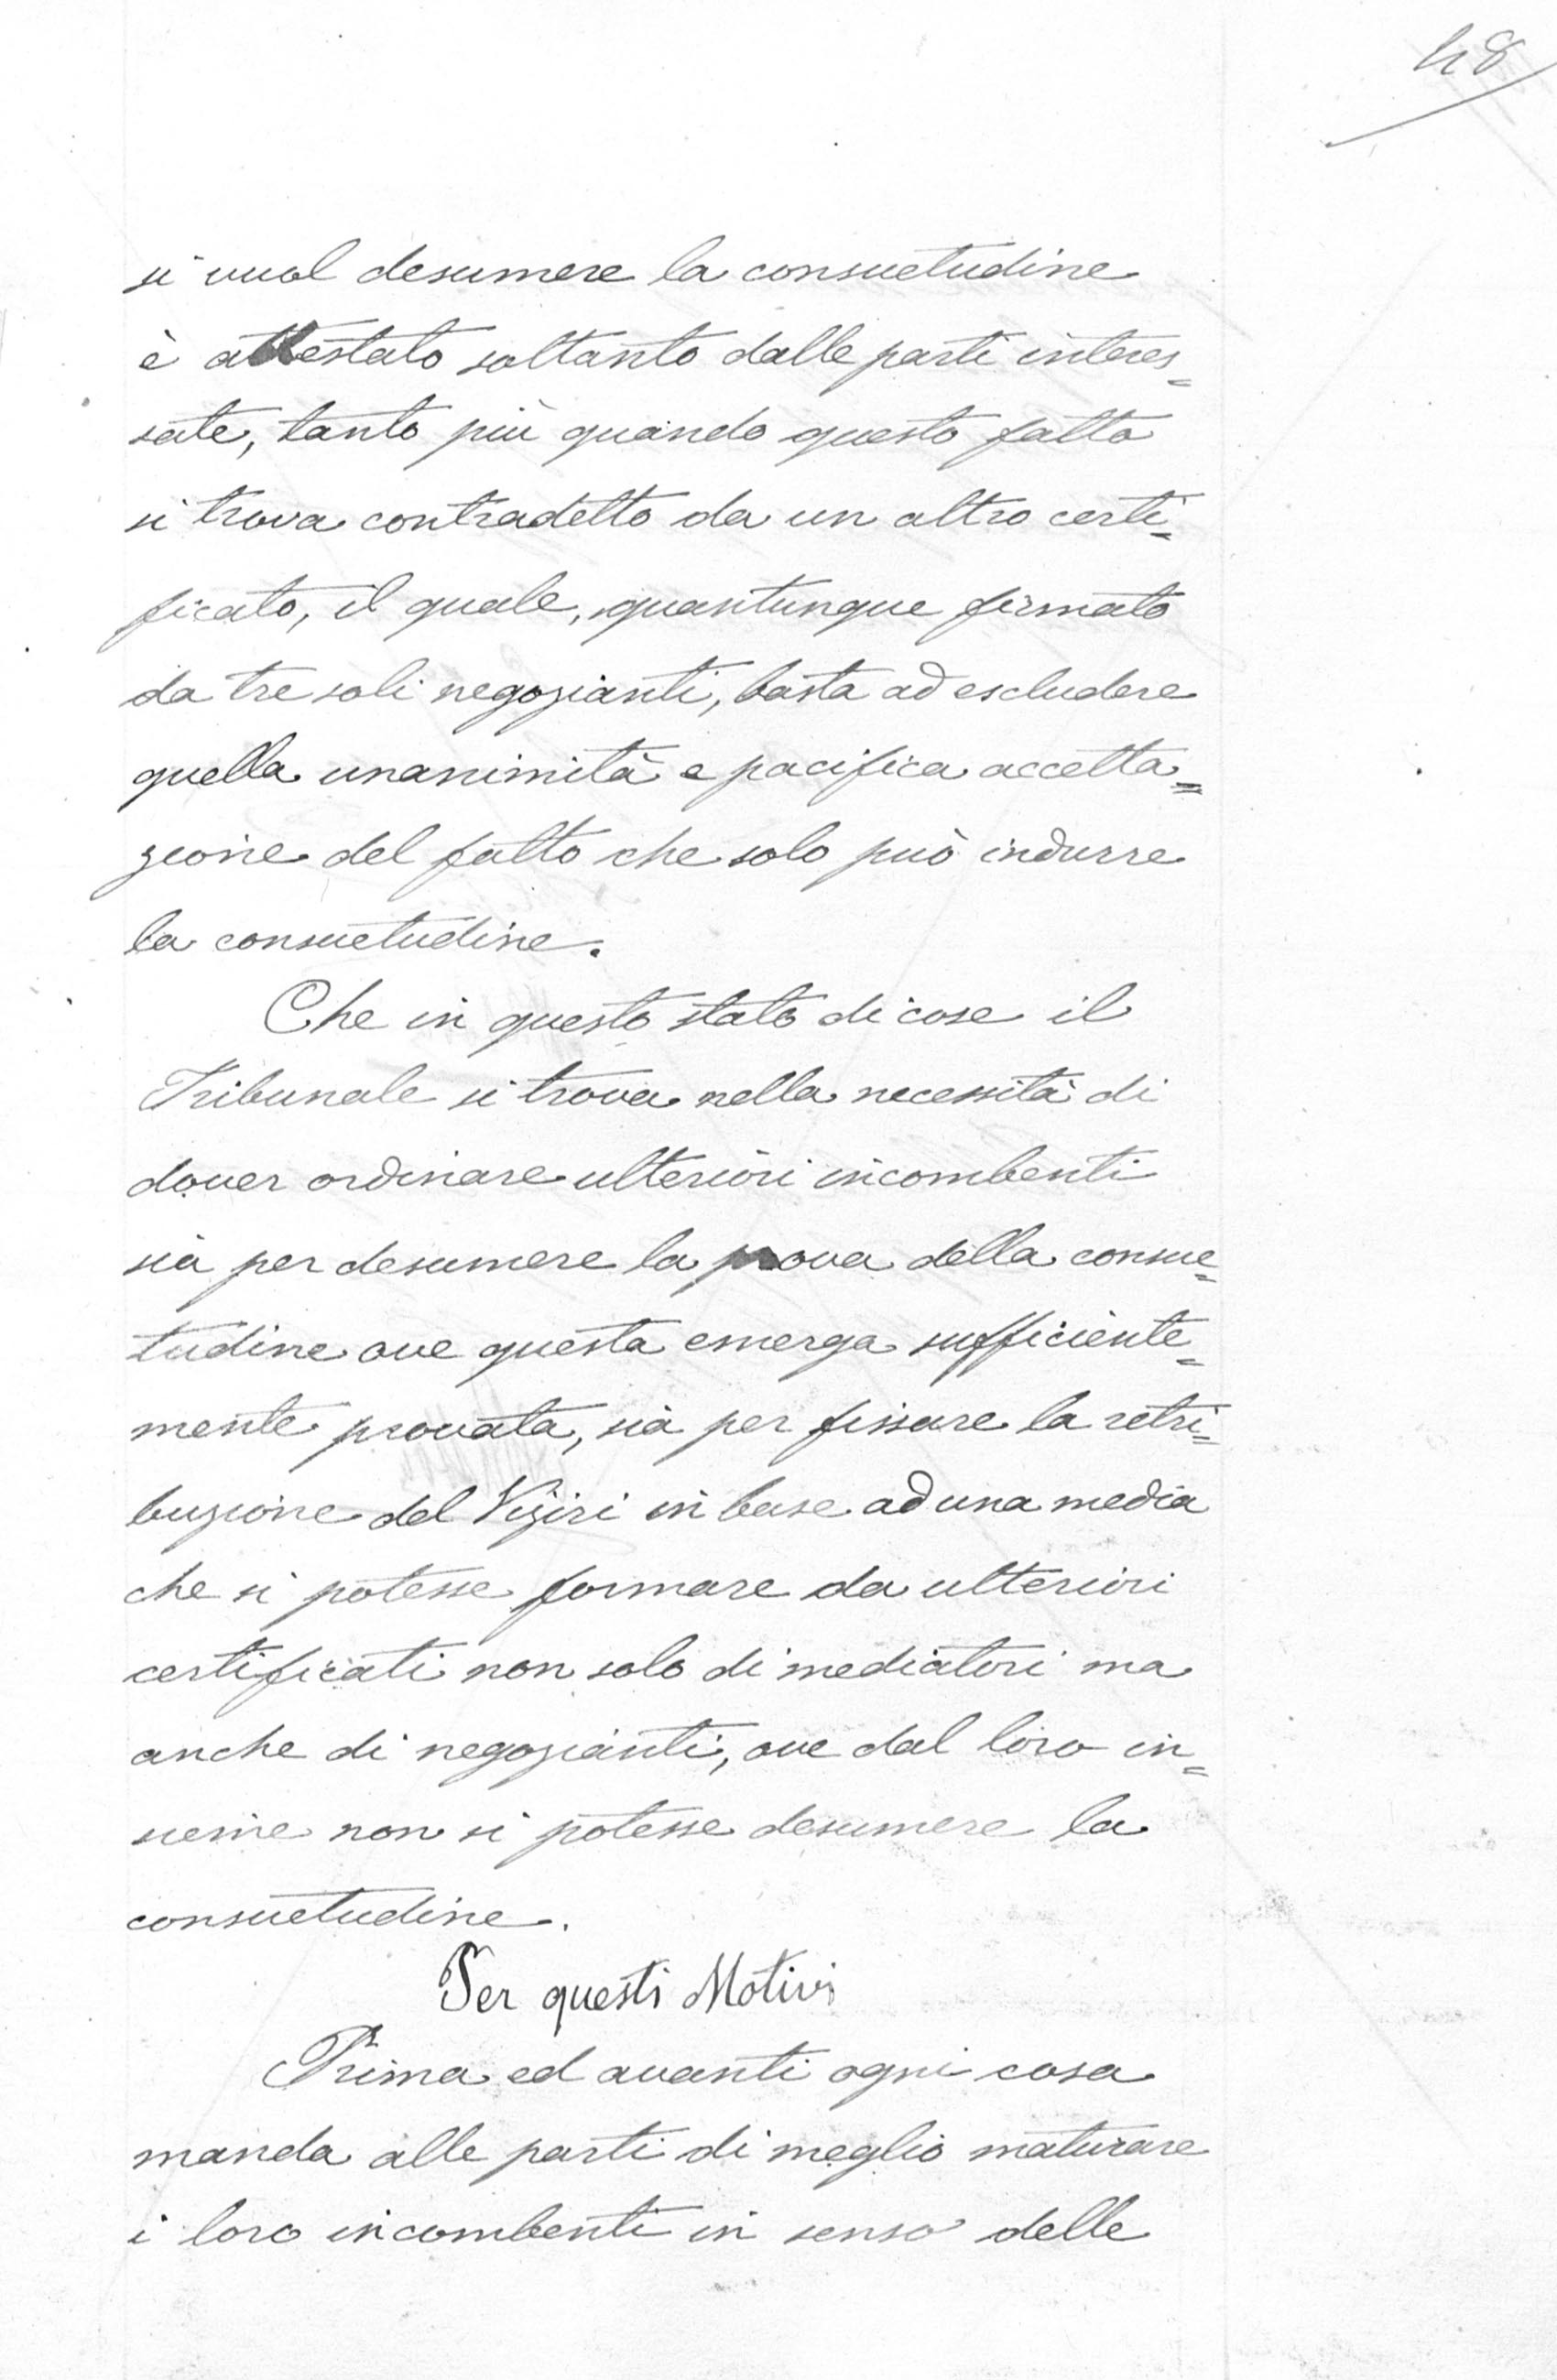 48
si vuol desumere la consuetudine
è attestato soltanto dalle parti interes=
sate, tanto più quando questo fatto
si trova contradetto da un altro certi=
ficato, il quale, quantunque firmato
da tre soli negozianti, basta ad escludere
quella unanimità e pacifica accetta=
zione del fatto che solo può indurre
la consuetudine.
Che in questo stato di cose il
Tribunale si trova nella necessità di
dover ordinare ulteriori incombenti
sia per desumere la prova della consue=
tudine ove questa emerga sufficiente=
mente provata, sia per fissare la retri=
buzione del Viziri in base ad una media
che si potesse formare da ulteriori
certificati non solo di mediatori ma
anche di negozianti, ove dal loro in=
sieme non si potesse desumere la
consuetudine.
Per questi Motivi
Prima ed avanti ogni cosa
manda alle parti di meglio maturare
i loro incombenti in senso delle